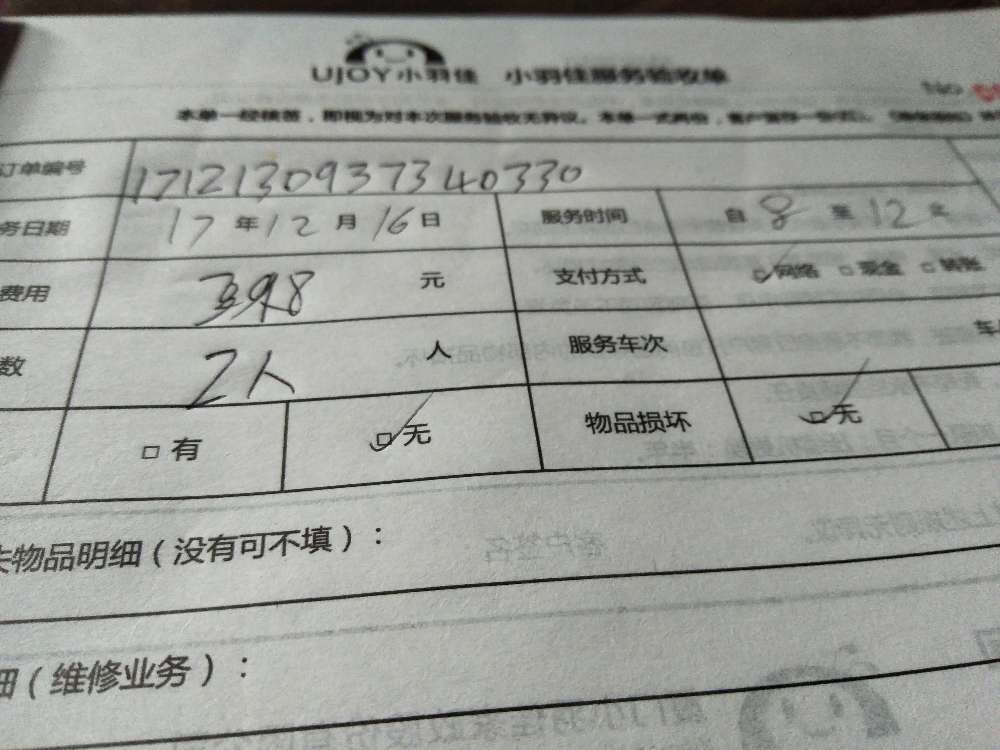 UJOY小羽佳 小羽佳服务验收单
No
本单一经签署，即视为对本次服务验收无异议。本单一式两份，客户留存一份
订单编号 1712130937340330
务日期 17年12月16日 服务时间 自8至12
费用 元 支付方式 网络 现金 转账
数 2人 人 服务车次 车
有 无 物品损坏 无
失物品明细（没有可不填）：
细（维修业务）：